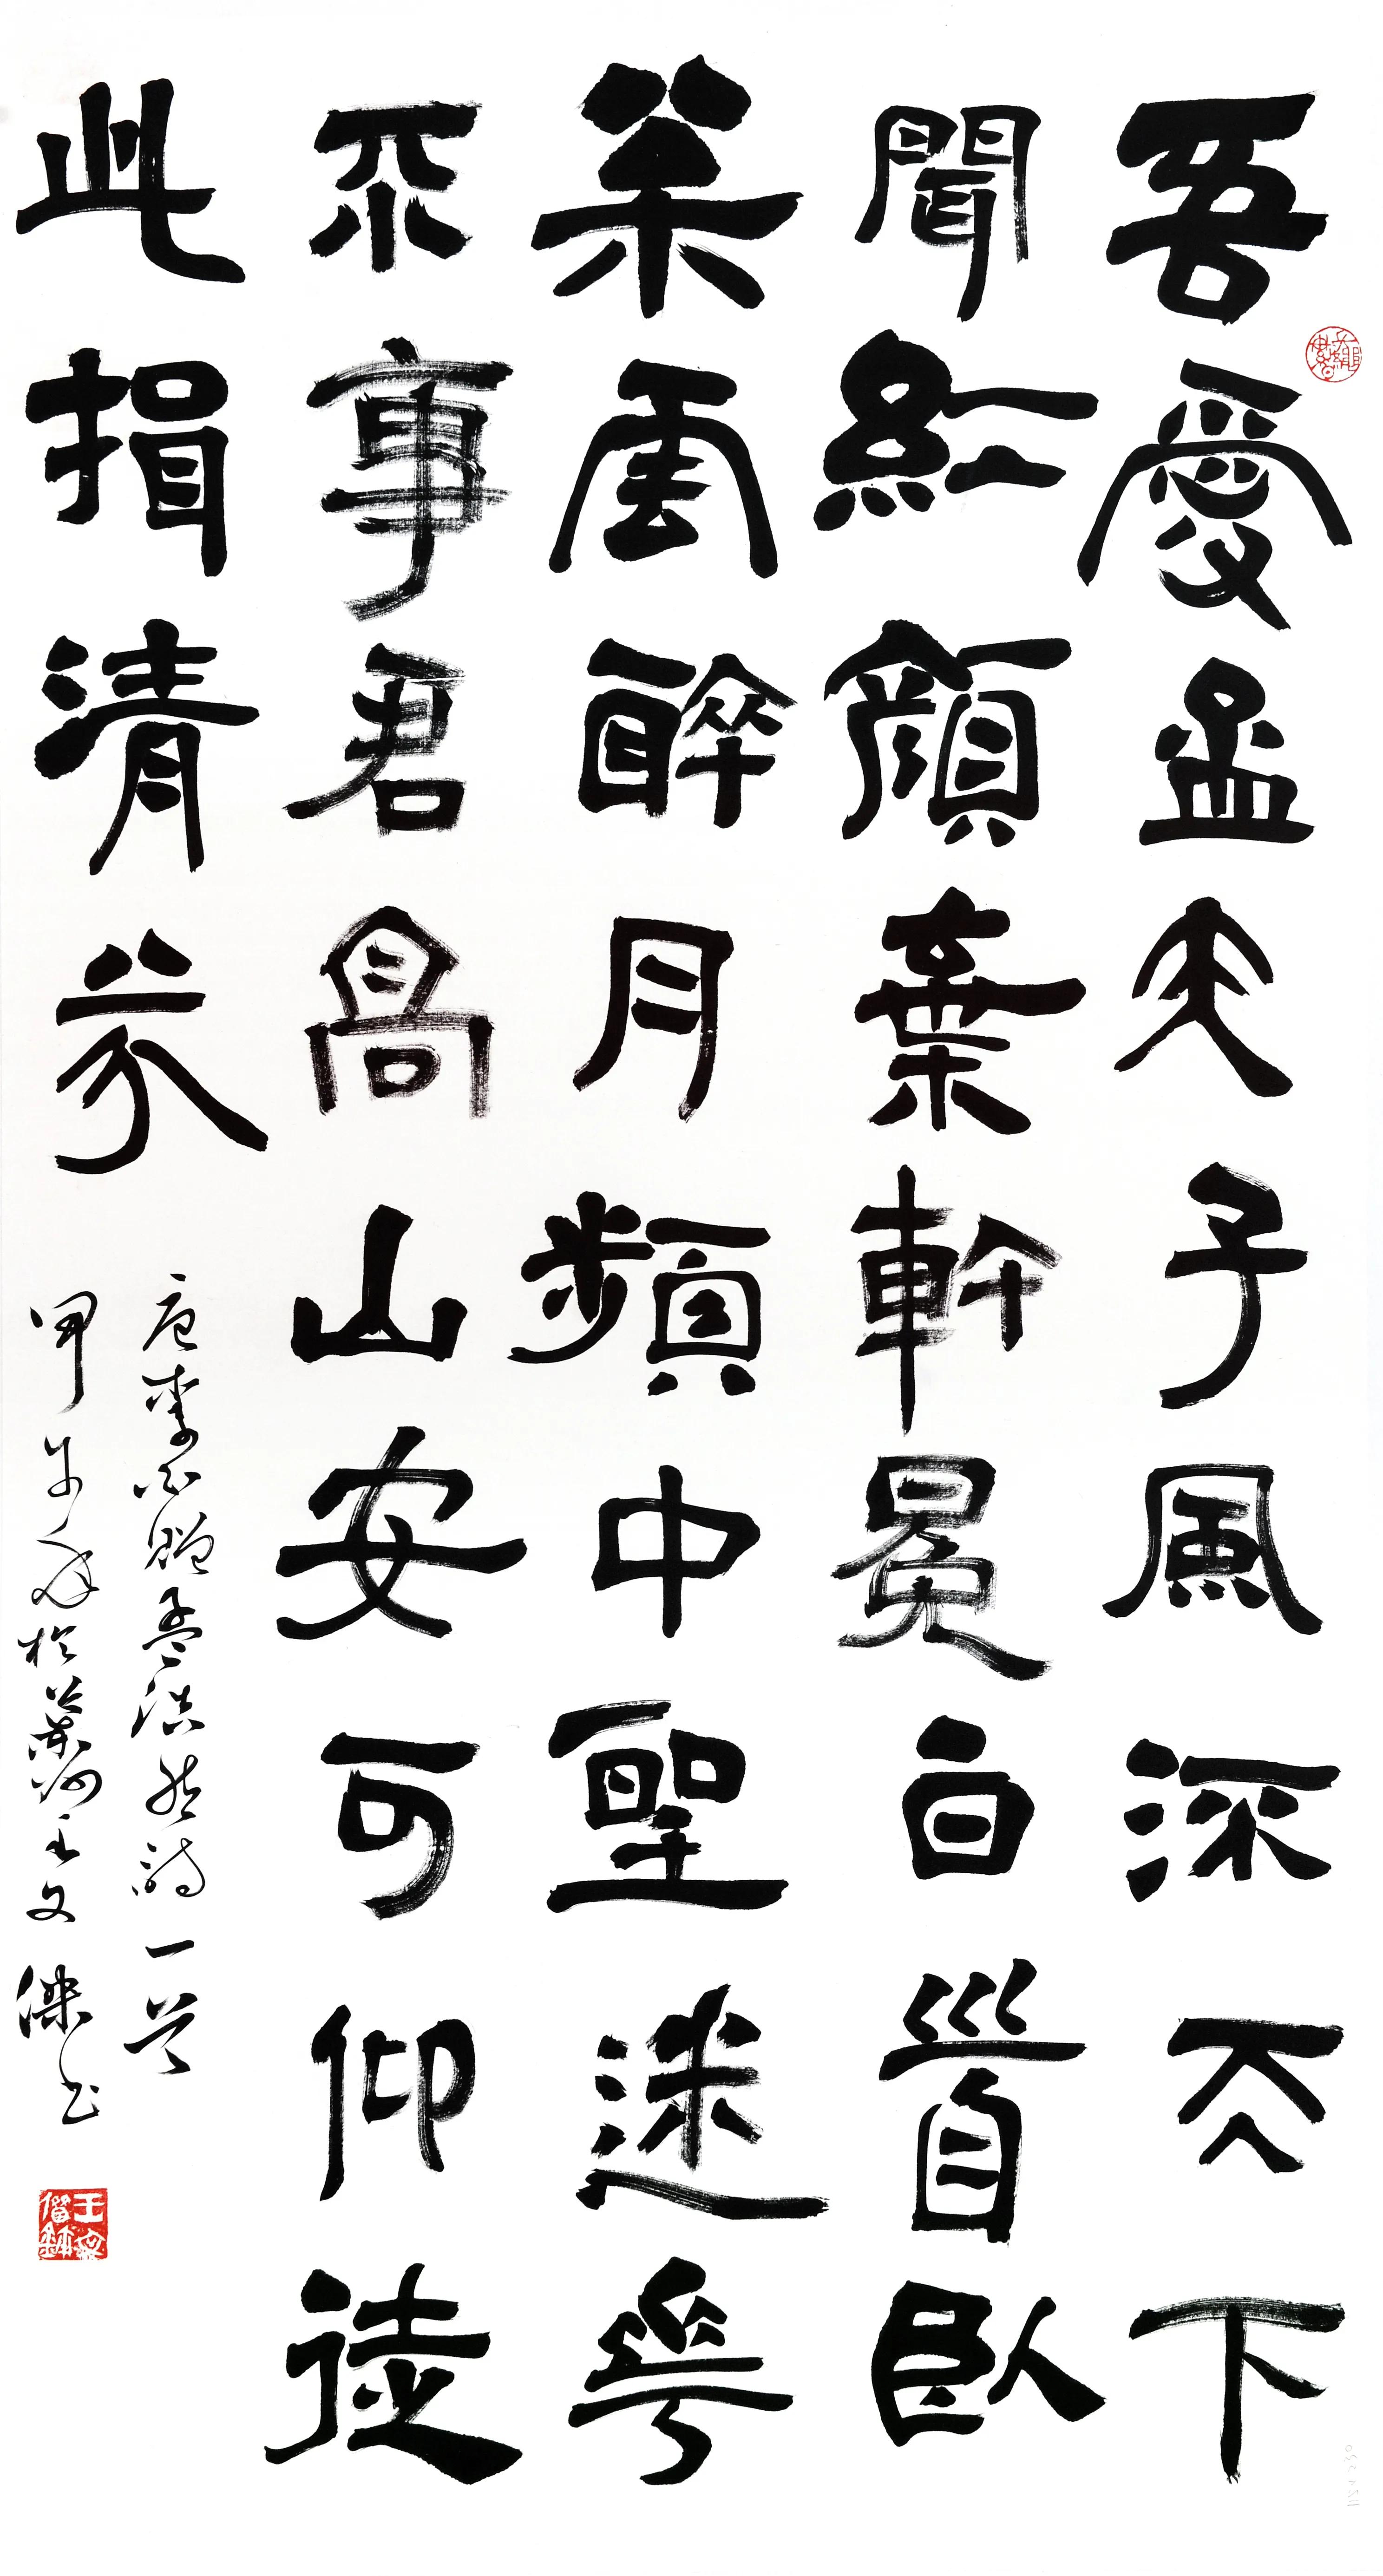 吾愛孟夫子風深天下
聞紅顏棄軒冕白首臥
松雲醉月頻中聖迷花
不事君高山安可仰徒
此揖清芬
唐李白贈孟浩然詩一首
甲午年於萊州王文傑書